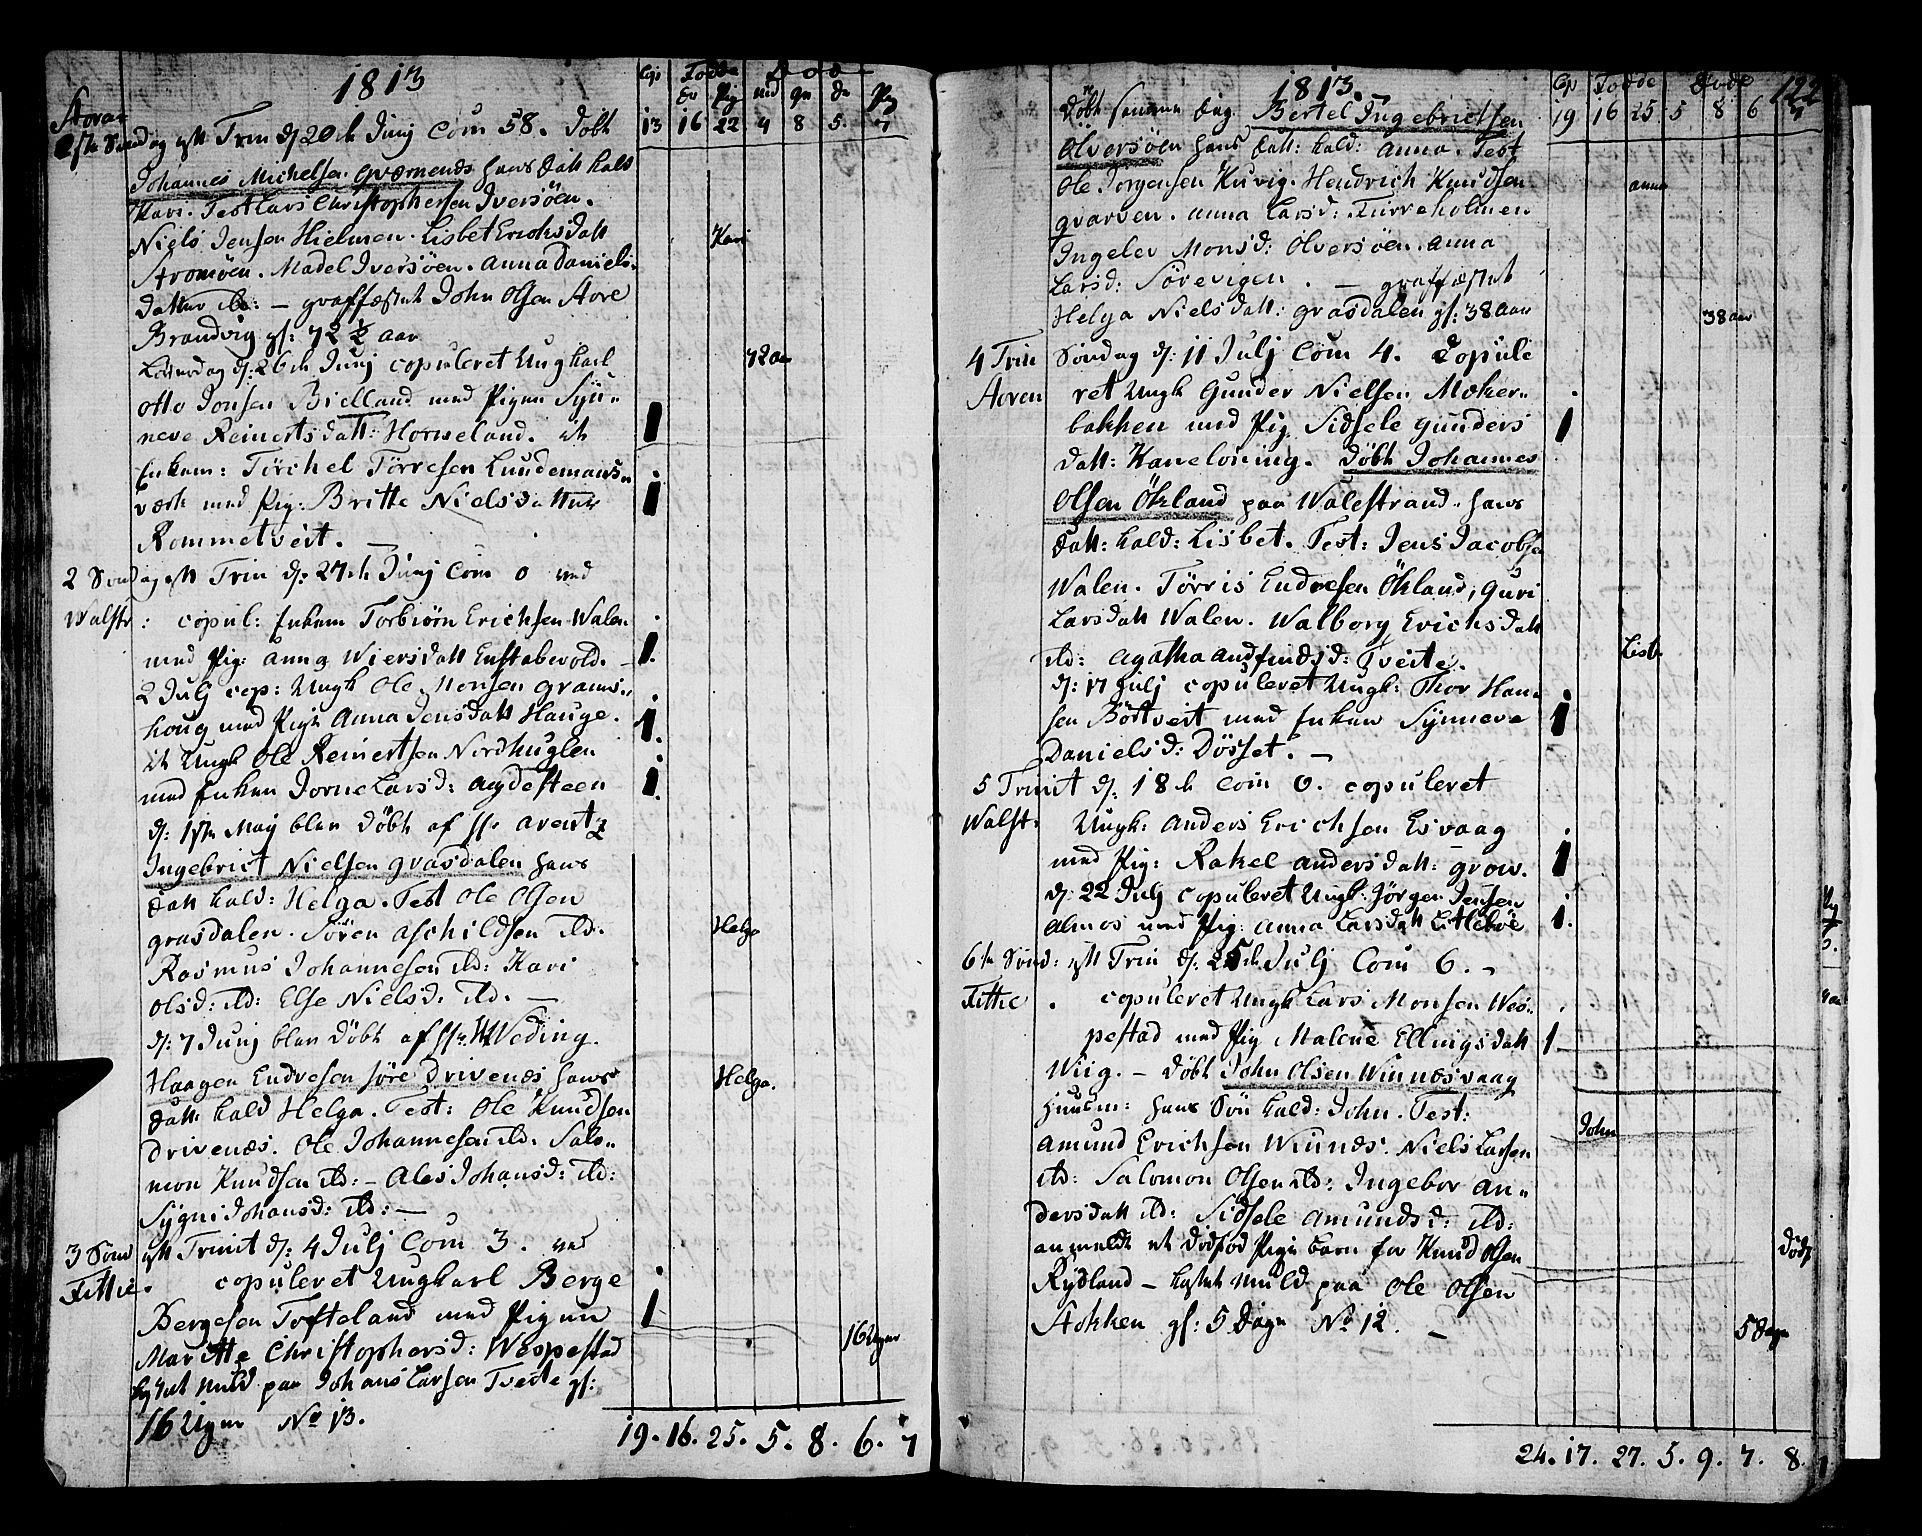 1813
Cop Fødde Døde
Dr Pig md qv dr Pig
Storøen
1ste Søndag eft Trin d: 20de Junj Com 58. Døbt
13 16 22 4 8 5. 7
Johannes Michelsen Qværnenæs hans Datt kald
Kari. Test Lars Christophersen Iversöen.
Niels Jensen Hielmen. Lisbet Erichsdatt
Kari
Stromöen. Madel Iversöen. Anna Daniels
datter ibd: — graffæstet John Olsen Store
Brandvig gl: 72 ½ aar
72 aar
Løverdag d: 26de Junj copuleret Ungkarl
Otto Jonsen Bielland med Pigen Syn-
neve Reinertsdatt: Horneland. it
Enkem: Törchel Törresen Lundemans-
værk med Pig: Britte Nielsdatter
Rommetveit. —
2 Søndag eft Trin d: 27de Junj Com 0 ved
Walstr: copul: Enkem Torbiörn Erichsen Walen
med Pig: Anna Wiersdatt Enstabevold. —
2 Julj cop: Ungk Ole Monsen Grams-
houg med Pige Anna Jensdatt Hauge.
it Ungk Ole Reinertsen Nordhuglen
med Enken Jorne Larsd: Agdesteen
d: 1ste Maij blev Døbt af Hr Arentz
Ingebrict Nielsen Grasdalen hans
Datt kald: Helga. Test Ole Olsen
Helga
Grasdalen. Sören Aschildsen ibd.
Rasmus Johannesen ibd: Kari
Olsd: ibd: Else Nielsd: ibd. —
d: 7 Junj blev Døbt af Hr: Weding.
Haagen Endresen Söre Drivenæs hans
Helga.
datt kald Helga. Test: Ole Knudsen
Drivenæs. Ole Johannesen ibd. Salo-
mon Knudsen ibd: — Ales Johansd: ibd:
Sygni Johansd: ibd: —
3 Sønd eft Trinit d: 4 Julj Com 3. ved
Fittie. copuleret Ungkarl Berge
Bergesen Tofteland med Pigen
Maritte Christophersd: Wespestad
16 Uger
kastet Muld paa Johans Larsen Tveite gl:
16 Uger No 13.
19. 16. 25. 5. 8. 6. 7
1813. —
Cop Fødde Døde 122
Døbt samme Dag Bertel Ingebrictsen
19 16 25 5 8 6 7
Ölversöen hans Datt: kald: Anna. Test
Ole Jörgensen Kuvig. Hendrich Knudsen
anna
Qvarven. Anna Larsd: Furreholmen
Ingelev Monsd: Olversöen. Anna
Larsd: Sörevigen. — graffæstet
Helga Nielsdatt: Grasdalen gl: 38 aar
38 aar
4 Trin Søndag d: 11 Julj Com 4. Copule
Storen ret Ungk Gunder Nielsen Moker-
bakken med Pig Sidsele Gunders
datt: Kaneloning. Døbt Johannes
Olsen Ökland paa Walestrand. hans
Datt: kald: Lisbet. Test: Jens Jacobsen
Walen. Törris Endresen Ökland, Guri
Larsdatt Walen. Walborg Erichsdatt
Lisb.
ibd: Agatha Andfindsd: Tveite.
d: 17 Julj copuleret Ungk: Thor Han-
sen Börtveit med Enken Synneva
Danielsd: Dösset. —
5 Trinit d: 18de Com 0. copuleret
Walst: Ungk: Anders Erichsen Esvaag
med Pig: Rakel Andersdatt: Grow.
d: 22 Julj copuleret Ungk: Jörgen Jensen
Almos med Pig: Anna Larsdatt Litleböe
6te Sønd: eft Trin d: 25de Julj Com 6. —
Fittie. copuleret Ungk Lars Monsen Wes-
pestad med Pig Malene Ellingsdatt
Wiig. — Døbt John Olsen Winnesvaag
hans Sön kald: John. Test:
John
Amund Erichsen Winnæs. Niels Larsen
ibd: Salomon Olsen ibd: Ingebor An-
dersdatt ibd: Sidsele Amundsd: ibd:
anmeldt et dødfød Pige barn for Knud Olsen
dødf
Rydland — kastet Muld paa Ole Olsen
Stokken gl: 5 Dage No 12. —
5 Dage
24. 17. 27. 5. 9. 7. 8.